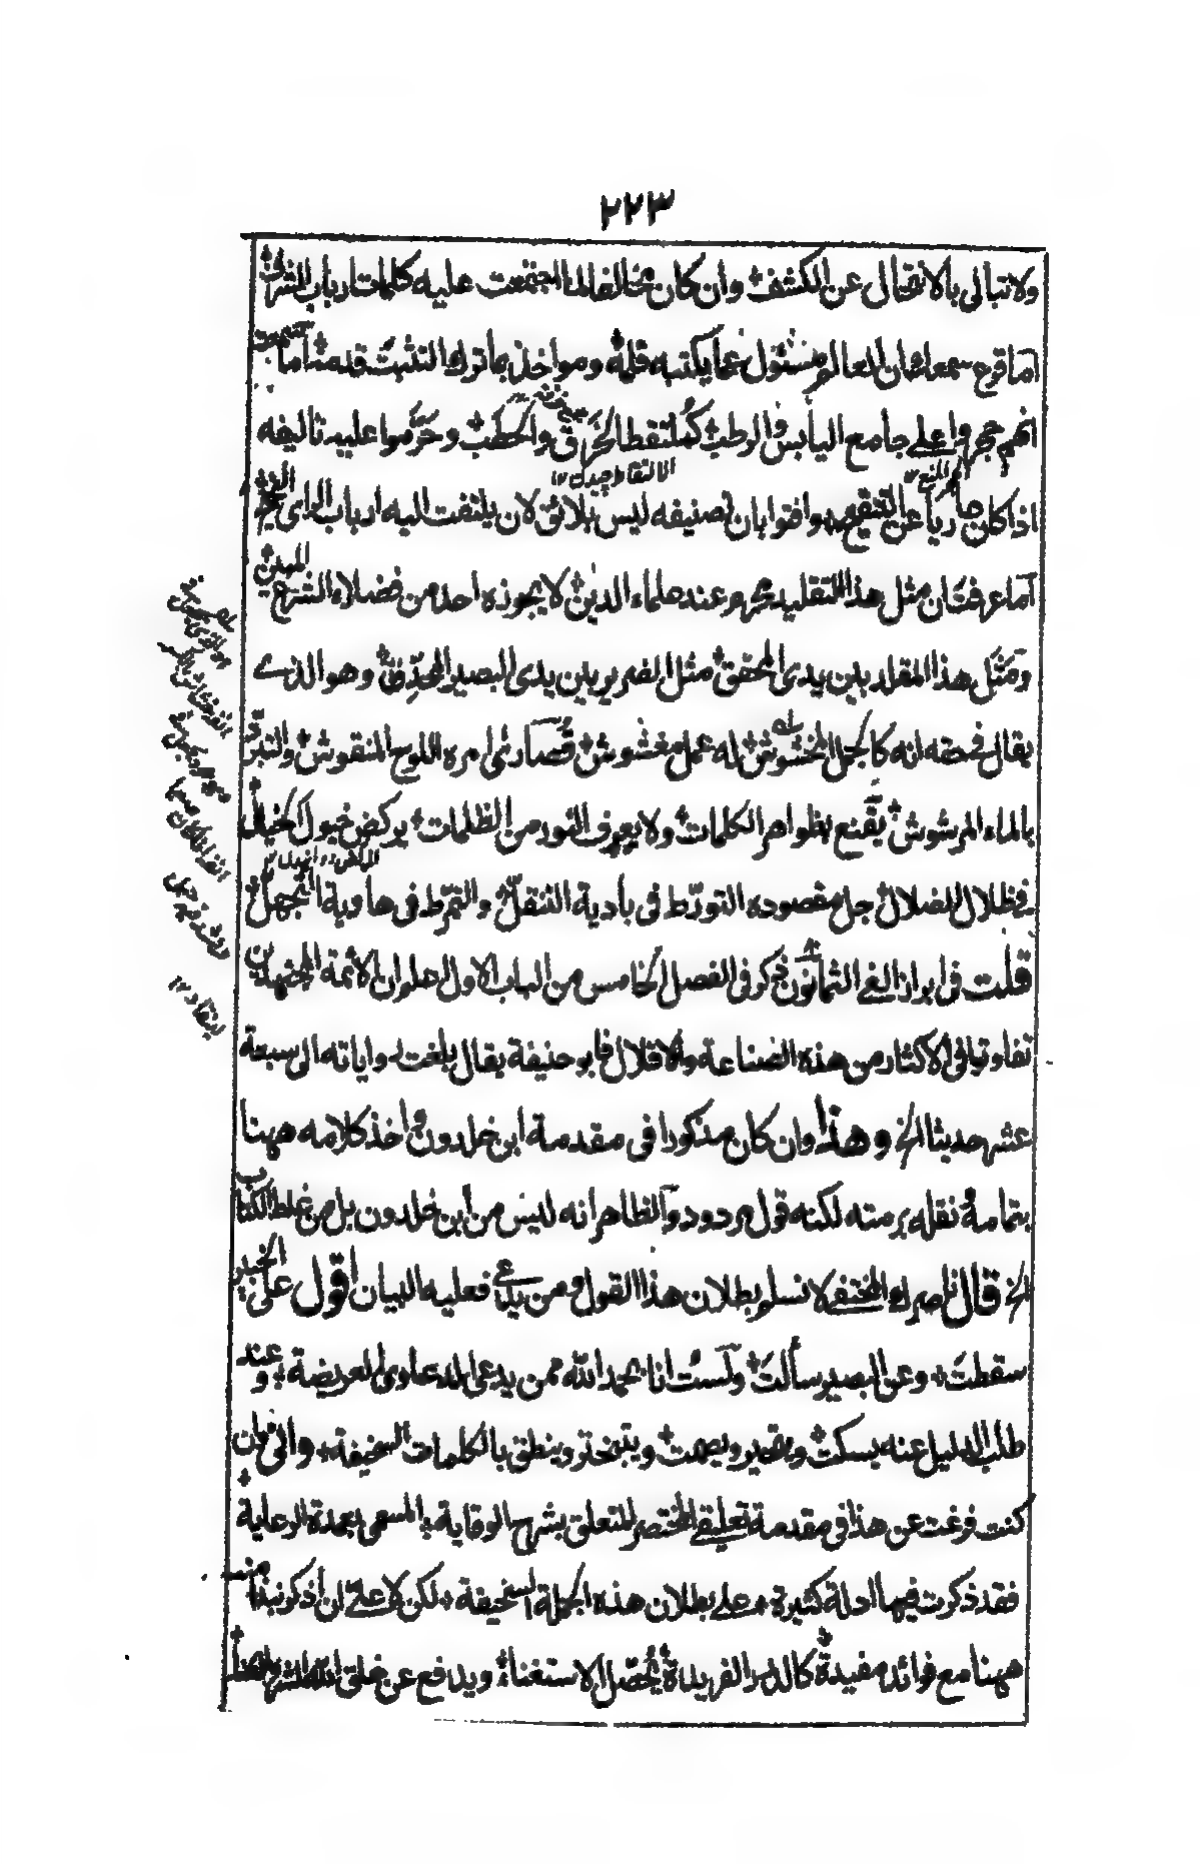 ٢٢٣
ولا تبالي بالانتحال عن الكشف وان كان مخالفا لما اجتمعت عليه كلمات ارباب الشرف
اما قرع سمعك ان العالم مسئول عما يكتبه قلمه ومواخذ بما ترك التثبت قدمه اما
انهم حجروا على جامع اليابس والرطب كملتقط الخرق والحطب وحرموا عليه تاليفه
اذا كان عاريا عن التنقيح وافتوا بان تصنيفه ليس بلائق لان يلتفت اليه ارباب الراى
اما عرفت ان مثل هذا التقليد محرم عند علماء الدين لا يجوزه احد من فضلاء الشرع المبين
ومثل هذا المقلد بين يدى المحقق مثل الضرير بين يدى البصير المحدق وهو الذى
يقال في حقه انه كالجمل المخشوش له عمل مغشوش قصارى امره اللوح المنقوش
بالماء المرشوش يقنع بظواهر الكلمات ولا يعرف النور من الظلمات يركض خيول الخيال
في ظلال الضلال جل مقصوده التورط في بادية التنقل والتمرط في هاوية التجهل
قلت في ابراز الغي الثمانون ذكر في الفصل الخامس من الباب الاول اعلم ان الائمة المجتهدين
تفاوتوا في الاكثار من هذه الصناعة والاقلال فابو حنيفة يقال بلغت رواياته الى سبعة
عشر حديثا الخ وهذا وان كان مذكورا في مقدمة ابن خلدون واخذ كلامه ههنا
بتمامه نقله برمته لكنه قول مردود والظاهر انه ليس من ابن خلدون بل من غلط الكتاب
الخ قال ناصرك المختفى لا نسلم بطلان هذا القول ومن يدعى فعليه البيان اقول على الخبير
سقطت وعن البصير سألت ولست انا بحمد الله ممن يدعى الدعاوى العريضة وعند
طلب الدليل عنه يسكت ويصمت ويتبختر وينطق بالكلمات السخيفة واني وان
كنت فرغت عن هذا في مقدمة تعليقي المختصر المتعلق بشرح الوقاية المسمى بعمدة الرعاية
فقد ذكرت فيها ادلة كثيرة على بطلان هذه الجملة السخيفة لكن لا على ان اذكر نبذا منه
ههنا مع فوائد مفيدة كالدرر الفريدة يحصل الاستغناء ويدافع عن خلق الله